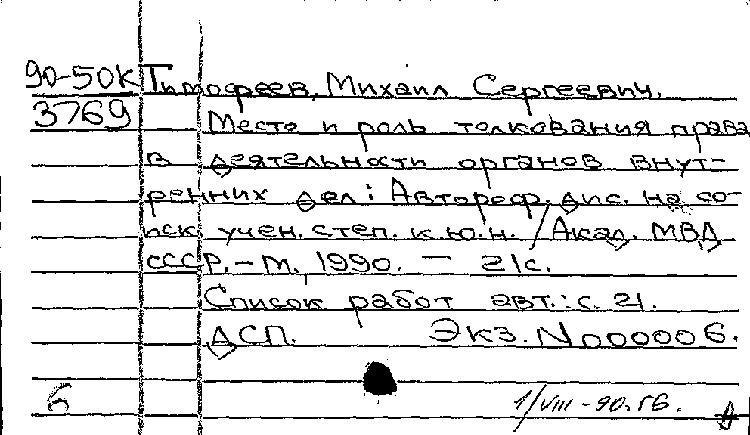 90-50К Тимофеев, Михаил Сергеевич.
3769 Место и роль толкования права
в деятельности органов внут-
ренних дел: Автореф. дис. на со-
иск. учен. степ. к.ю.н. / Акад. МВД
СССР. - М., 1990. - 21с.
Список работ авт.: с. 21.
ДСП. Экз. N 000006.
6 1/VIII-90.